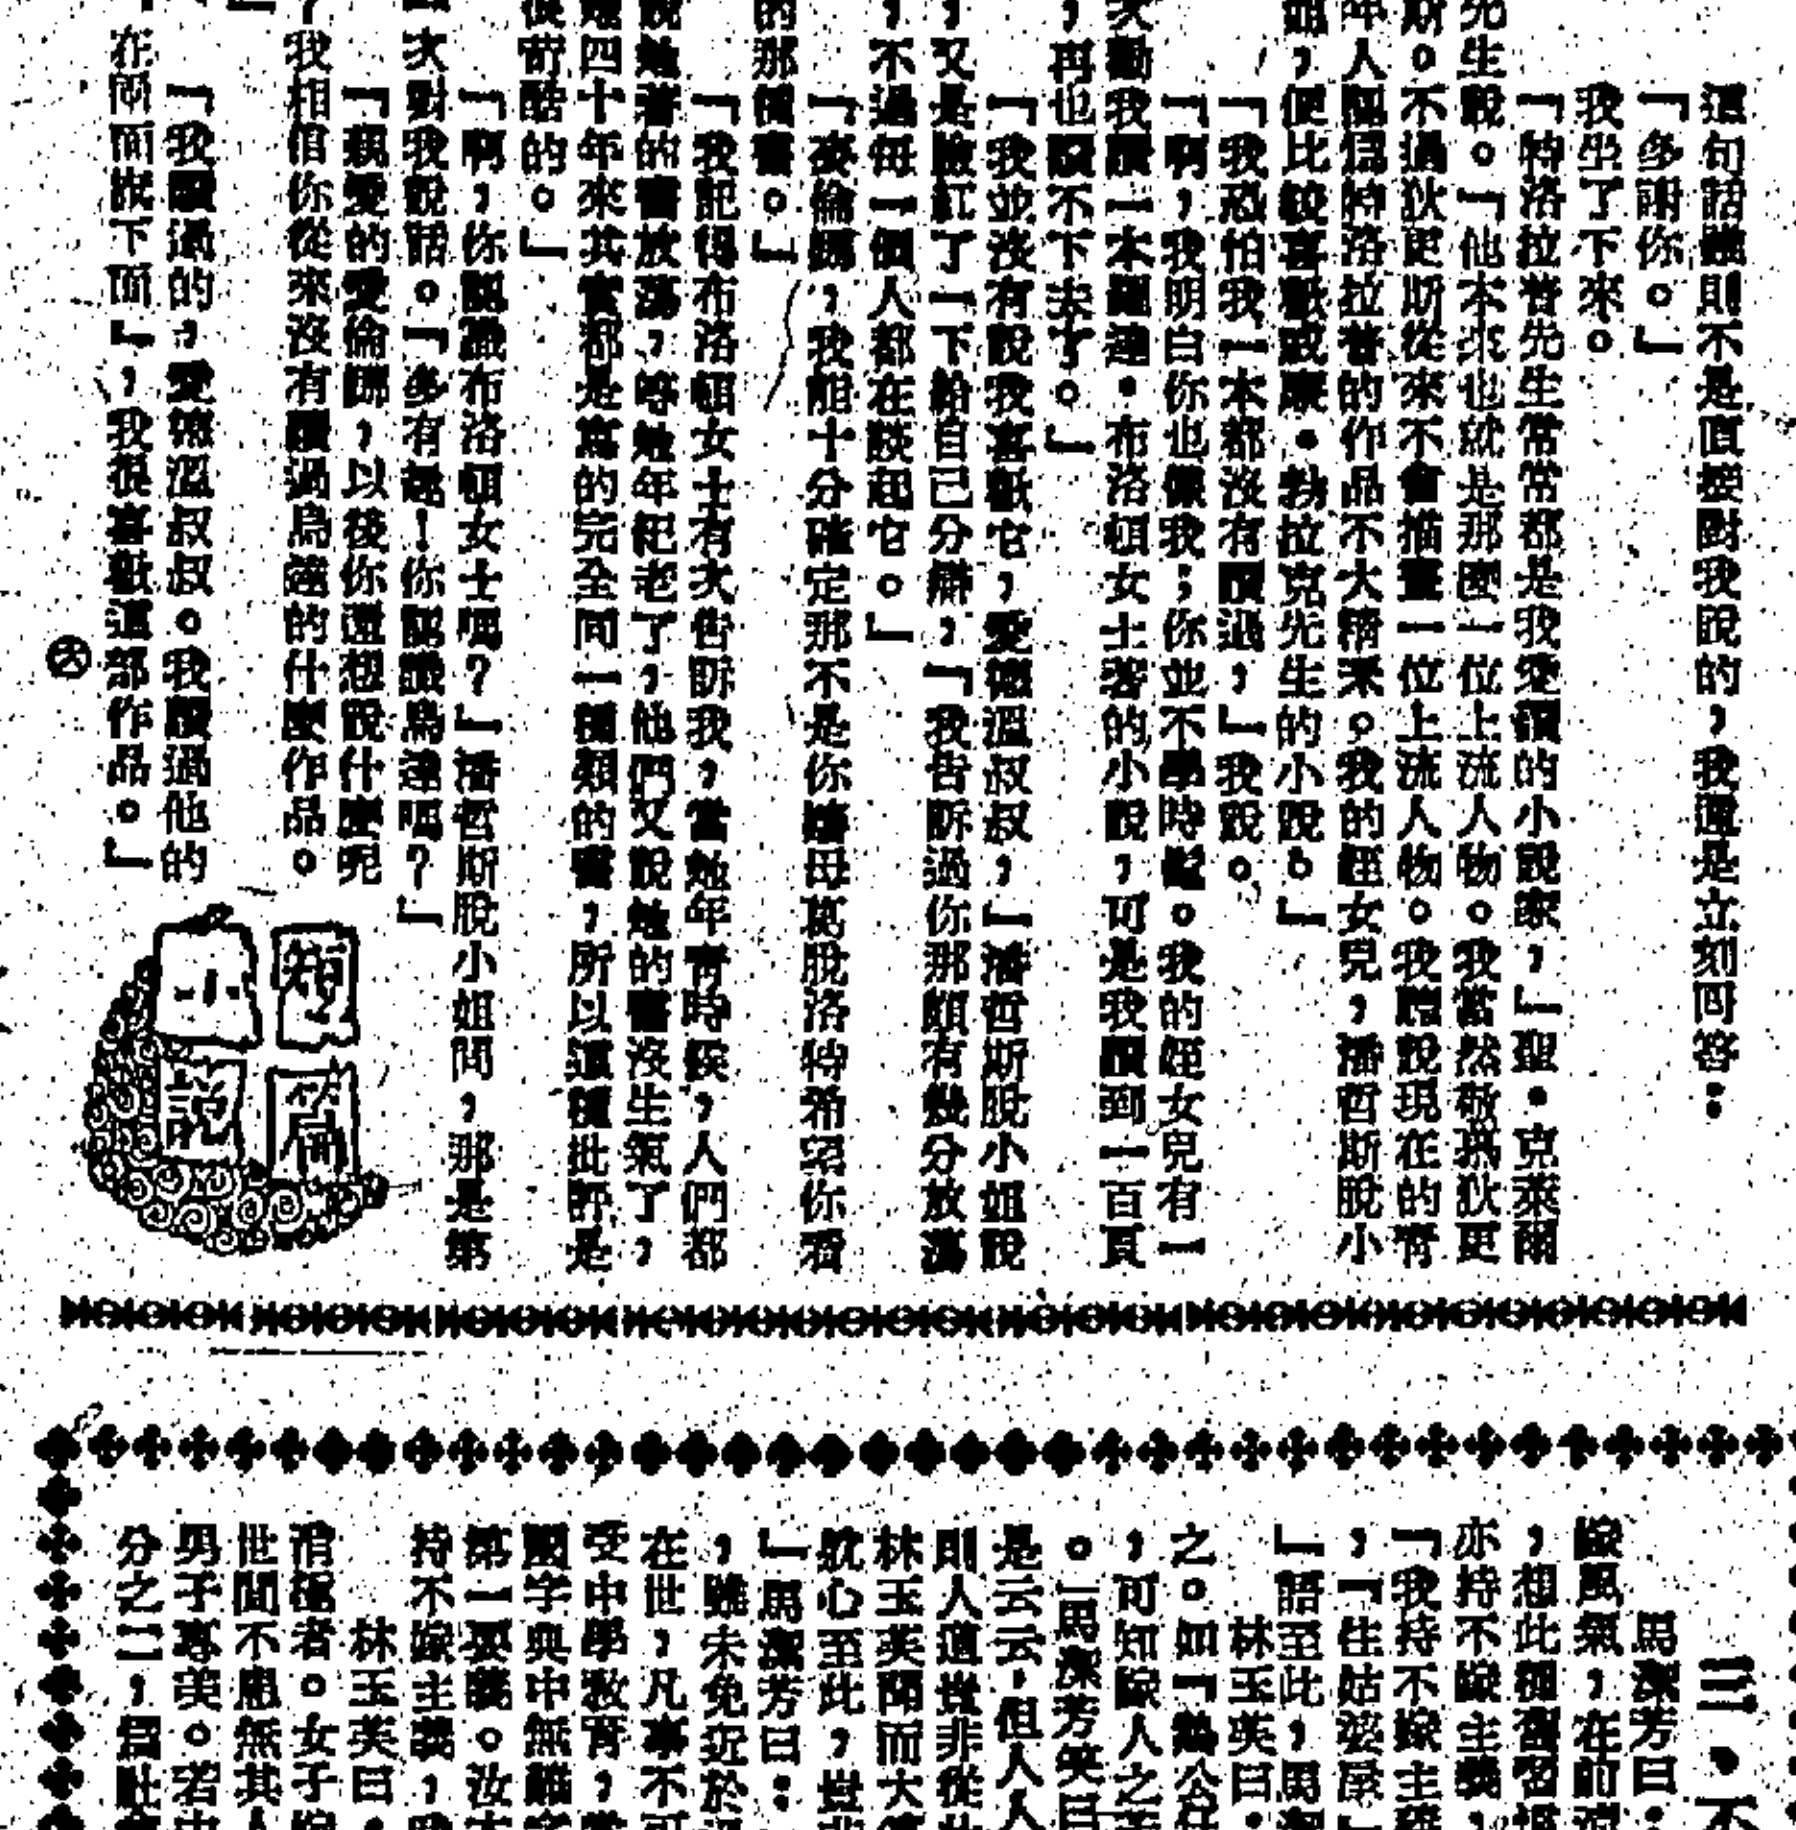 這句話雖則不是直接對我說的，我還是立刻回答：
「多謝你。」
我坐了下來。
「特洛拉普先生常常都是我愛讀的小說家，」聖・克萊爾
先生說。「他本來也就是那麼一位上流人物。我當然敬慕狄更
斯。不過狄更斯從來不會描畫一位上流人物。我聽說現在的青
年人認爲特洛拉普的作品不大精采。我的姪女兒，潘哲斯脫小
姐，便比較喜歡威廉・勃拉克先生的小說。」
「我恐怕我一本都沒有讀過，」我說。
「啊，我明白你也像我；你並不學時髦。我的姪女兒有一
次勸我讀一本羅達・布洛頓女士著的小說，可是我讀到一百頁
，再也讀不下去了。」
「我並沒有說我喜歡它，愛德溫叔叔，」潘哲斯脫小姐說
，又是臉紅了一下給自己分辯，「我告訴過你那頗有幾分放蕩
，不過每一個人都在談起它。」
「愛倫娜，我能十分確定那不是你嬸母葛脫洛特希望你看
的那種書。」
「我記得布洛頓女士有次告訴我，當她年青時候，人們都
說她著的書放蕩，等她年紀老了，他們又說她的書沒生氣了，
她四十年來其實都是寫的完全同一種類的書，所以這種批評是
很苛酷的。」
「啊，你認識布洛頓女士嗎？」潘哲斯脫小姐問，那是第
次對我說話。「多有趣！你認識烏達嗎？」
「親愛的愛倫娜，以後你還想說什麼呢
？我相信你從來沒有讀過烏達的什麼作品。
」
「我讀過的，愛德溫叔叔。我讀過他的
在兩面旗下面」，我很喜歡這部作品。」
㊅
短篇
小說
三・不
馬潔芳曰：
嫁風氣，在前
，想此種舊習
亦持不嫁主義，
「我持不嫁主
，「住姑婆屋」
」語至此，馬潔
林玉英曰：
之。如「
，可知嫁人之
。」馬潔芳笑曰
是云云，但人人
則人道豈非從此
林玉英聞而大
耽心至此，豈非
」馬潔芳曰：
，雖未免近於
在世，凡事不可
受中學教育，當
國字典中無難字
第一要義。汝
持不嫁主義，
林玉英曰：
滑稽者。女子
世間不患無其人
男子專美。若
分之二，爲